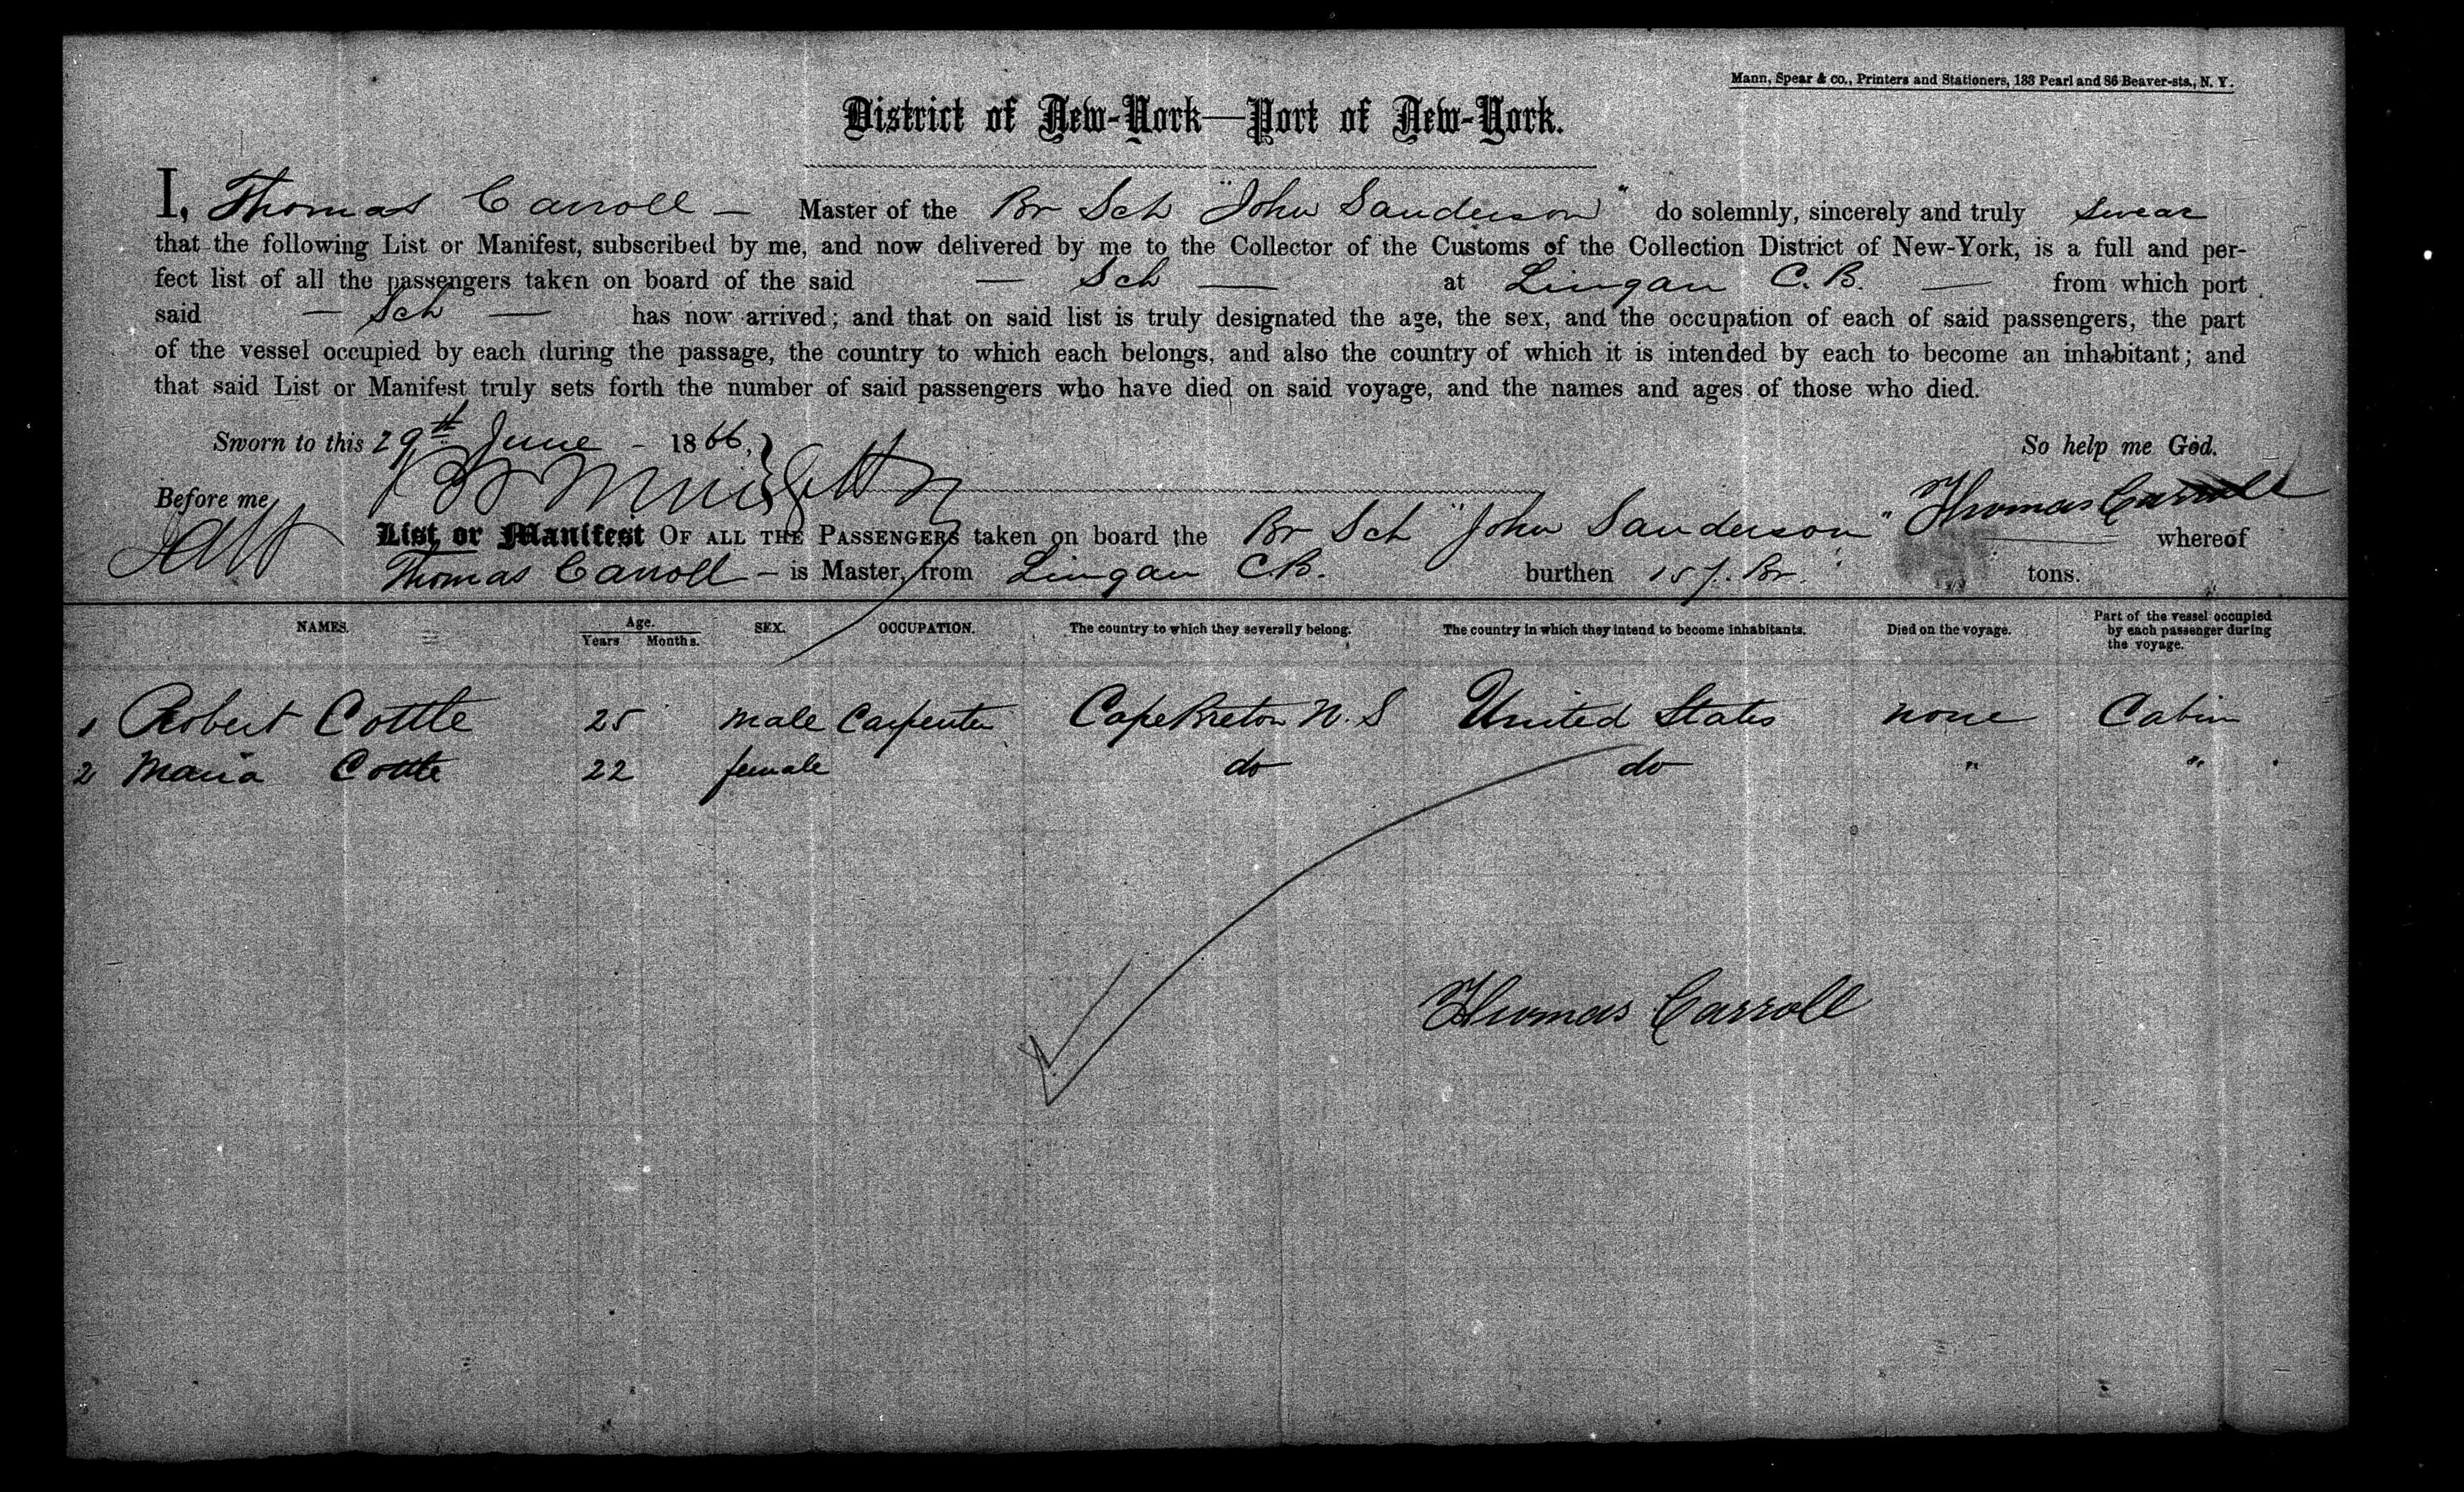 Mann, Spear & co., Printers and Stationers, 133 Pearl and 86 Beaver-sts., N. Y.
District of New-York—Port of New-York.
I, Thomas Carroll — Master of the Br Sch "John Sanderson" do solemnly, sincerely and truly swear
that the following List or Manifest, subscribed by me, and now delivered by me to the Collector of the Customs of the Collection District of New-York, is a full and per-
fect list of all the passengers taken on board of the said — Sch — at Lingan C.B. — from which port
said — Sch — has now arrived; and that on said list is truly designated the age, the sex, and the occupation of each of said passengers, the part
of the vessel occupied by each during the passage, the country to which each belongs, and also the country of which it is intended by each to become an inhabitant; and
that said List or Manifest truly sets forth the number of said passengers who have died on said voyage, and the names and ages of those who died.
Sworn to this 29th June - 1866, So help me God.
Before me Thomas Carroll
List or Manifest OF ALL THE PASSENGERS taken on board the Br Sch "John Sanderson" whereof
Thomas Carroll — is Master, from Lingan C.B. burthen 157. Br. tons.
NAMES. Age. Years Months. SEX. OCCUPATION. The country to which they severally belong. The country in which they intend to become inhabitants. Died on the voyage. Part of the vessel occupied by each passenger during the voyage.
1 Robert Cottle 25 male Carpenter Cape Breton N.S United States none Cabin
2 Maria Cottle 22 female do do " "
Thomas Carroll